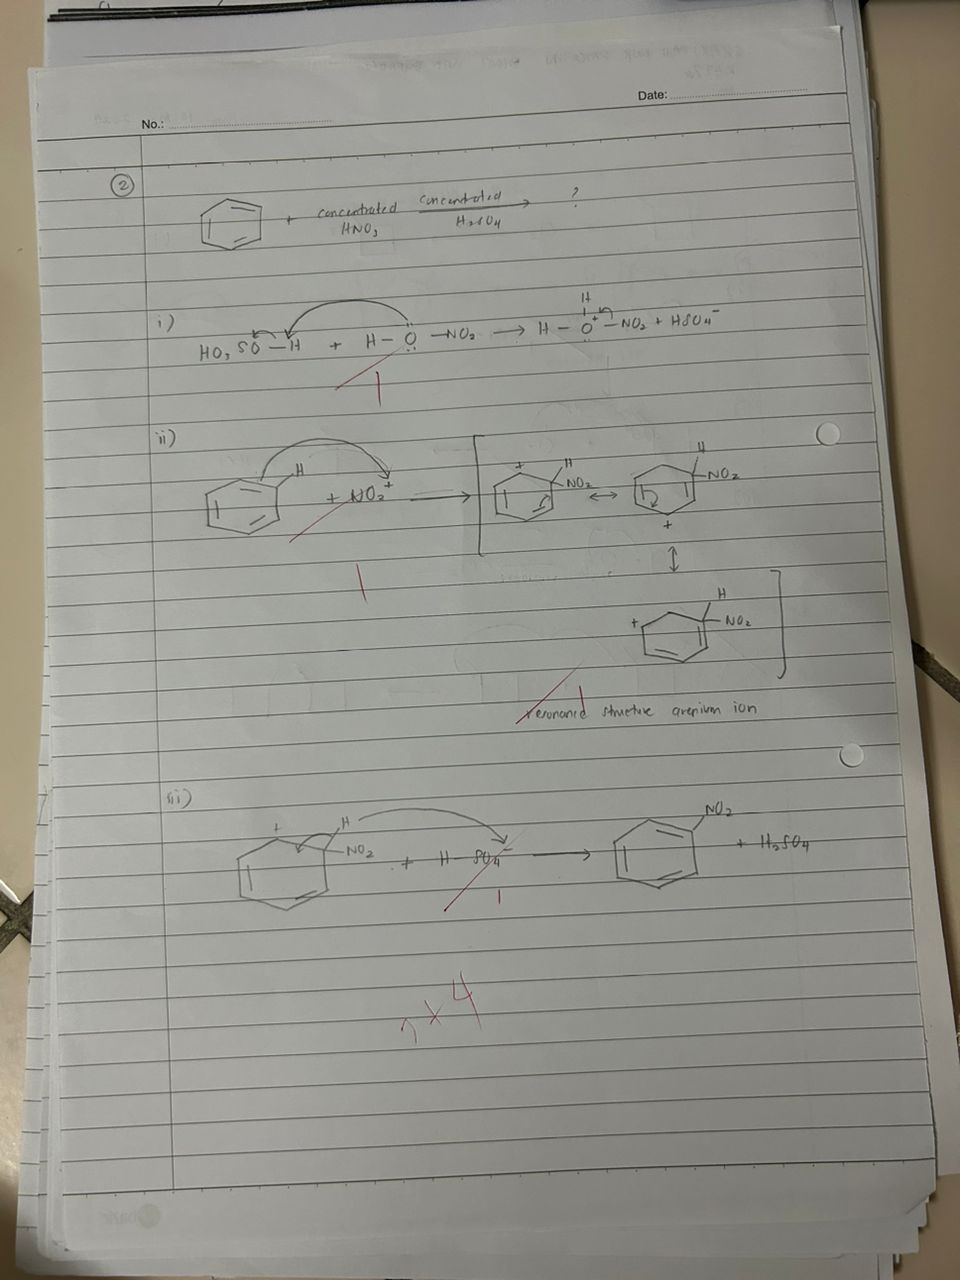 Date:
No.:
②
+ concentrated HNO₃ concentrated H₂SO₄ → ?
i)
HO₃SO — H + H — O — NO₂ → H — O⁺ — NO₂ + HSO₄⁻
H
1
ii)
H + NO₂⁺ → [ + H NO₂ ↔ H NO₂ +
1
↕
+ H NO₂ ]
1
resonance structure arenium ion
iii)
+ H NO₂ + H — SO₄⁻ → NO₂ + H₂SO₄
1
4